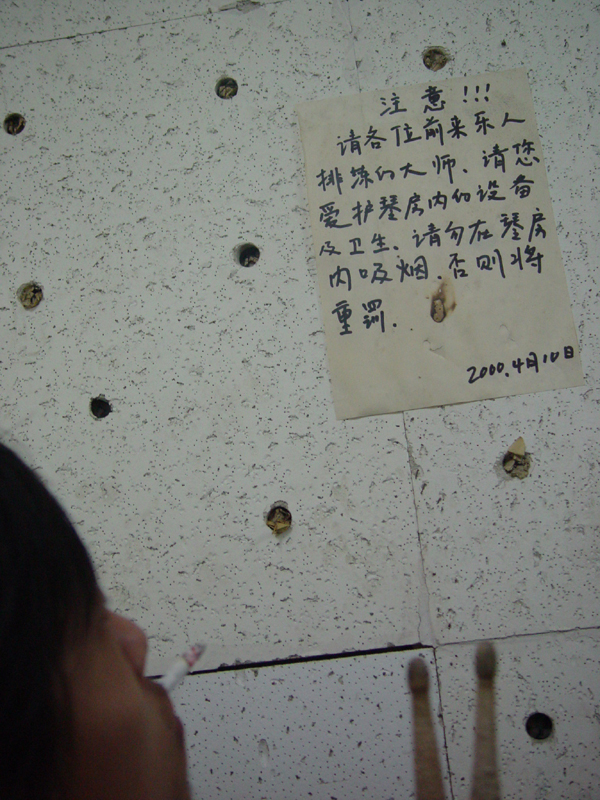 注意!!!
请各位前来乐人
排练的大师、请您
爱护琴房内的设备
及卫生、请勿在琴房
内吸烟.否则将
重罚.
2000.4月10日